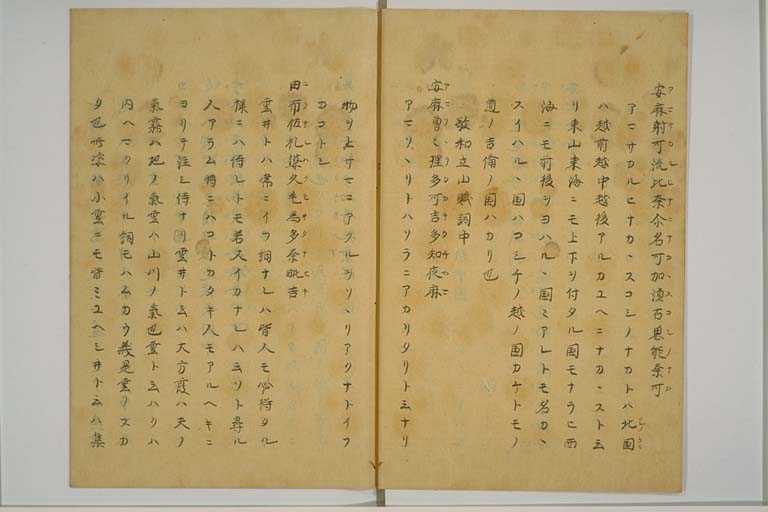 安麻射可流比奈尒名可加須古思能奈可
アマサカルヒナカヽスコシノナカトハ北国
ハ越前越中越後アルカユヘニナカヽストム
リ東山東海ニモ上下ヲ付タル国モナラヒ西
海ニモ前後ヲヨハルヽ国ミアレトモ名カヽ
スイハルヽ国ハコシチノ越ノ国カケトモノ
道ノ吉備ノ国ハカリ也
敬和立山賦詞中
安麻曽々理多可吉多知夜麻
アマソヽリトハソラニアカリタリト云ナリ
物ヲ上サマニアクルヲソヽリアクナトイフ
カコトシ
由布佐礼婆久毛為多奈毗吉
雲井トハ常ニイフ詞ナレハ皆人モ心得タル
様ニハ侍レトモ若スイカナレハ云ソト尋ル
人アラム時ニハコトカタキ人モアルヘキニ
ヨリテ注シ侍ナリ雲井ト云ハ大方霞ハ天ノ
氣霧ハ地ノ氣雲ハ山川ノ氣也霊ト云ハクハ
内ヘマクリイル詞モハムカウ義是雲ノスカ
タ也 ハ小雲ニモ皆ミユヘシ井ト云ハ集